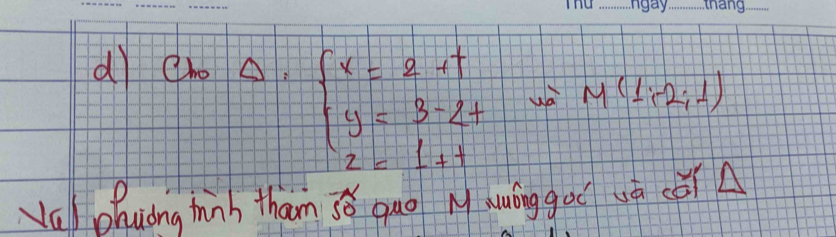 Thứ ..........ngày..........tháng.......
d) Cho Δ : { x = 2 + t
y = 3 - 2t và M(1;-2;1)
z = 1 + t
Viết phương trình tham số qua M vuông góc và cắt Δ